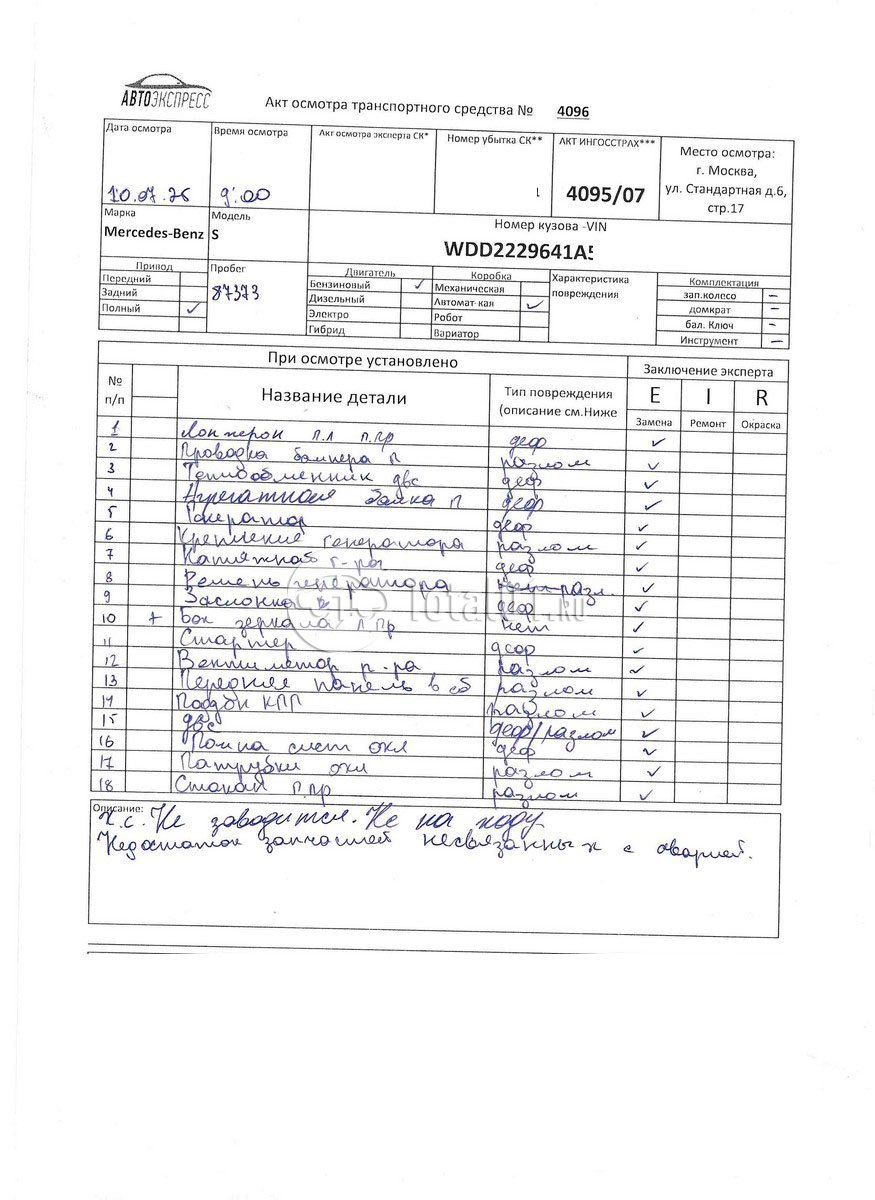 АВТОЭКСПРЕСС
Акт осмотра транспортного средства № 4096
Дата осмотра
Время осмотра
Акт осмотра эксперта СК*
Номер убытка СК**
АКТ ИНГОССТРАХ***
Место осмотра:
г. Москва,
ул. Стандартная д.6,
стр.17
10.07.26
9:00
4095/07
Марка
Mercedes-Benz
Модель
S
Номер кузова -VIN
WDD2229641A5
Привод
Передний
Задний
Полный ✓
Пробег
87373
Двигатель
Бензиновый ✓
Дизельный
Электро
Гибрид
Коробка
Механическая
Автомат-кая ✓
Робот
Вариатор
Характеристика
повреждения
Комплектация
зап.колесо –
домкрат –
бал. Ключ –
Инструмент –
При осмотре установлено
Заключение эксперта
№
п/п
Название детали
Тип повреждения
(описание см.Ниже
E I R
Замена Ремонт Окраска
1 Лонжерон п.л п.пр деф ✓
2 Проводка бампера п разлом ✓
3 Теплообменник двс деф ✓
4 Агрегатная балка п деф ✓
5 Генератор деф ✓
6 Крепление генератора разлом ✓
7 Натяжная г-ра деф ✓
8 Ремень генератора разл. ✓
9 Заслонка деф ✓
10 + Бок зеркала л пр нет ✓
11 Стартер деф ✓
12 Вентилятор р-ра разлом ✓
13 Передняя панель в сб разлом ✓
14 Поддон КПП разлом ✓
15 двс деф/разлом ✓
16 Помпа сист охл деф ✓
17 Патрубки охл разлом ✓
18 Стакан п.пр разлом ✓
Описание:
Т.с. Не заводится. Не на ходу
Недостаток запчастей несвязанных с аварией.
Total01.RU